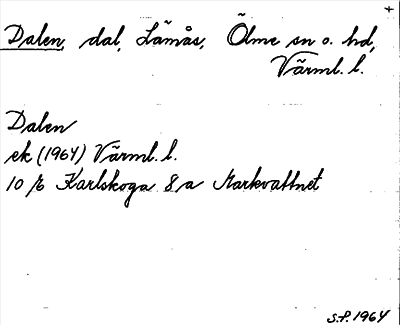 Dalen, dal, Lämås, Ölme sn o. hd,
Värml. l.
Dalen
ek (1964) Värml. l.
10 /6 Karlskoga 8 a Markvattnet
S.P. 1964